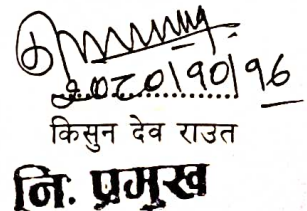 २०८०।१०।१६
किसुन देव राउत
नि. प्रमुख